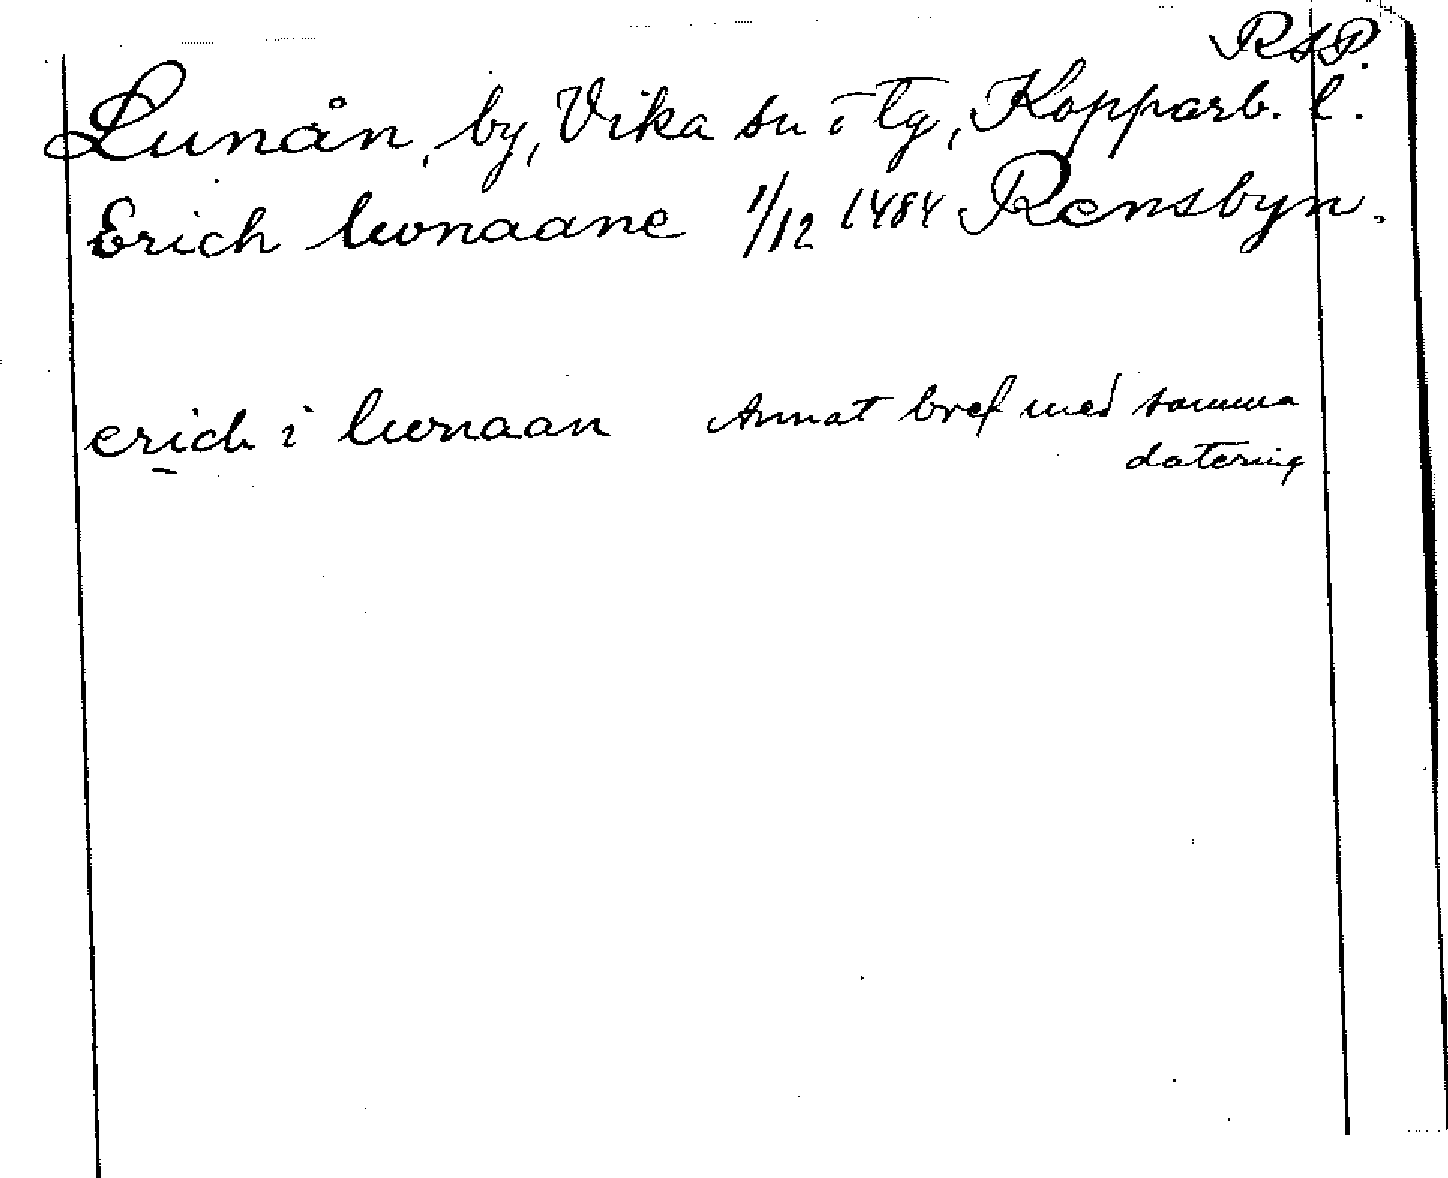 RAP.
Lunån, by, Vika sn o tg, Kopparb. l.
Erich lwnaane 1/12 1484 Rensbyn.
erich i lwnaan Annat bref med samma
datering